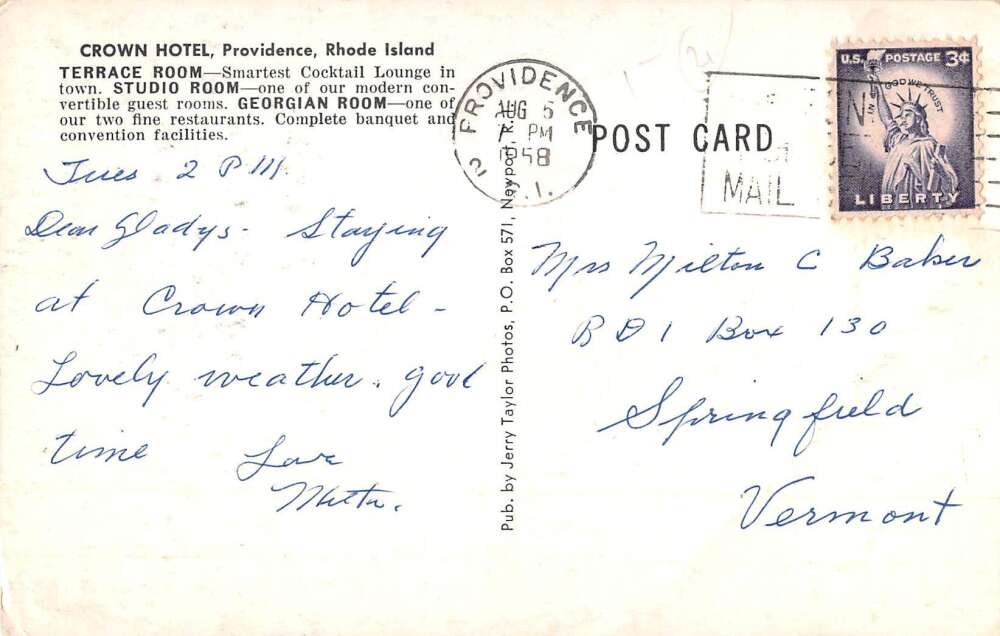 CROWN HOTEL, Providence, Rhode Island
TERRACE ROOM—Smartest Cocktail Lounge in
town. STUDIO ROOM—one of our modern con-
vertible guest rooms. GEORGIAN ROOM—one of
our two fine restaurants. Complete banquet and
convention facilities.
Tues 2 PM.
Dear Gladys- Staying
at Crown Hotel -
Lovely weather. good
time Love
PROVIDENCE
AUG 5
7 PM
1958
2 R.I.
Pub. by Jerry Taylor Photos, P.O. Box 571, Newport, R.I.
POST CARD
MAIL
U.S. POSTAGE 3¢
IN GOD WE TRUST
LIBERTY
Mrs Milton C Baker
RD 1 Box 130
Springfield
Vermont